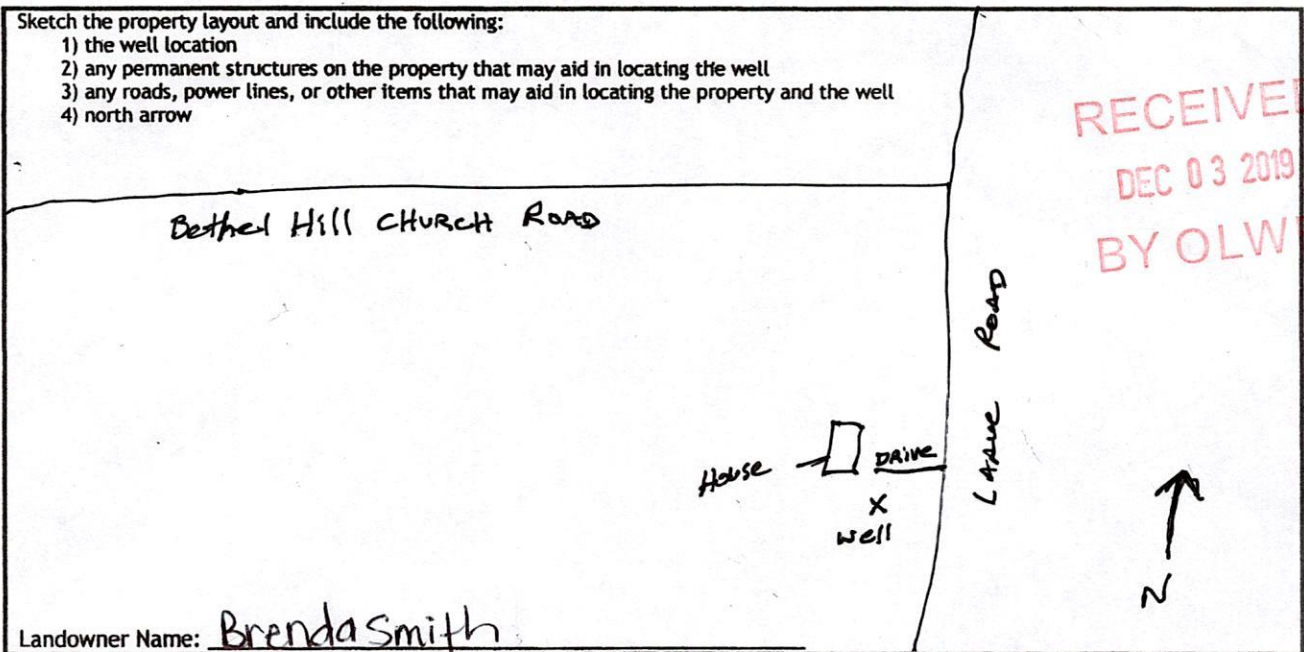 Sketch the property layout and include the following:
1) the well location
2) any permanent structures on the property that may aid in locating the well
3) any roads, power lines, or other items that may aid in locating the property and the well
4) north arrow
RECEIVE
DEC 03 2019
BY OLW
Bethel Hill CHURCH ROAD
LARUE ROAD
House
DRIVE
X
well
N
Landowner Name: Brenda Smith